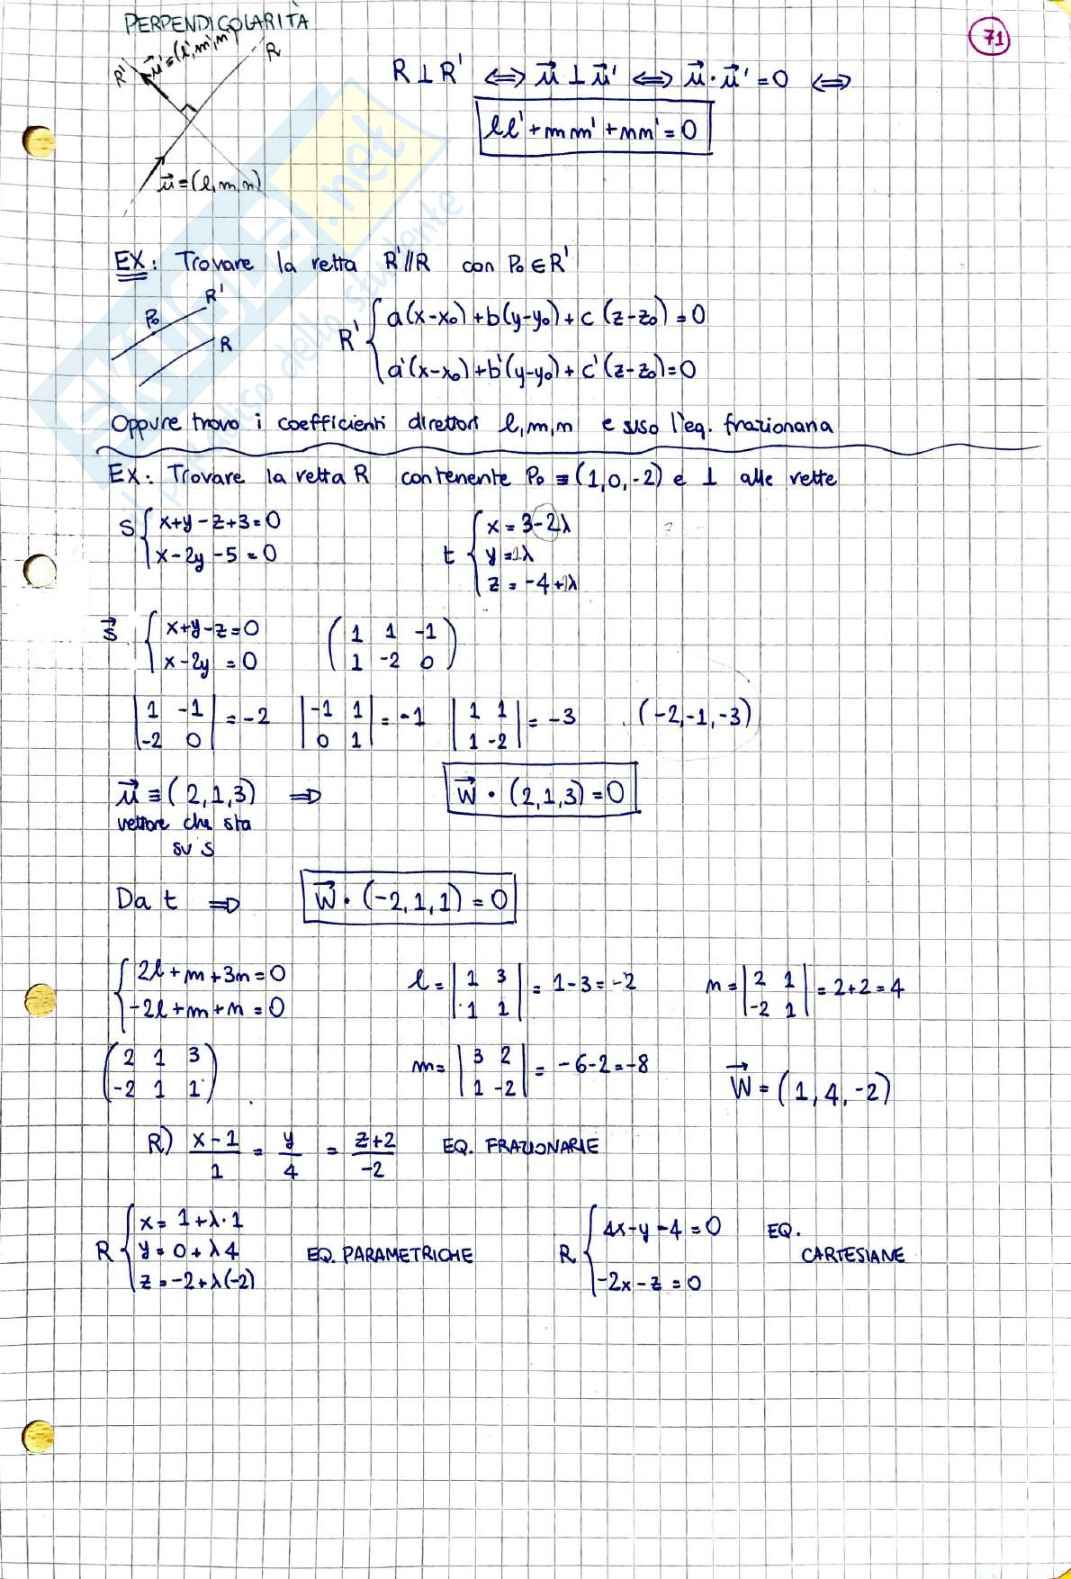 PERPENDICOLARITÀ
71
R' u⃗'=(l',m',n') R
R ⊥ R' ⟺ u⃗ ⊥ u⃗' ⟺ u⃗ · u⃗' = 0 ⟺
ll' + mm' + nn' = 0
u⃗ = (l,m,n)
EX: Trovare la retta R'//R con P₀ ∈ R'
P₀ R'
R
R' { a(x-x₀) + b(y-y₀) + c(z-z₀) = 0
a'(x-x₀) + b'(y-y₀) + c'(z-z₀) = 0
Oppure trovo i coefficienti direttori l,m,n e uso l'eq. frazionaria
EX: Trovare la retta R contenente P₀ ≡ (1,0,-2) e ⊥ alle rette
s { x+y-z+3=0
x-2y-5=0
t { x = 3-2λ
y = 1λ
z = -4+1λ
s⃗ { x+y-z=0
x-2y = 0
( 1 1 -1
1 -2 0 )
| 1 -1
-2 0 | = -2
| -1 1
0 1 | = -1
| 1 1
1 -2 | = -3
(-2,-1,-3)
u⃗ ≡ (2,1,3) ⟹ w⃗ · (2,1,3) = 0
vettore che sta
su s
Da t ⟹ w⃗ · (-2,1,1) = 0
{ 2l + m + 3n = 0
-2l + m + n = 0
l = | 1 3
1 1 | = 1-3 = -2
n = | 2 1
-2 1 | = 2+2 = 4
( 2 1 3
-2 1 1 )
m = | 3 2
1 -2 | = -6-2 = -8
w⃗ = (1, 4, -2)
R) x-1/1 = y/4 = z+2/-2 EQ. FRAZIONARIE
R { x = 1+λ·1
y = 0+λ4
z = -2+λ(-2)
EQ. PARAMETRICHE
R { 4x-y-4=0
-2x-z = 0
EQ.
CARTESIANE